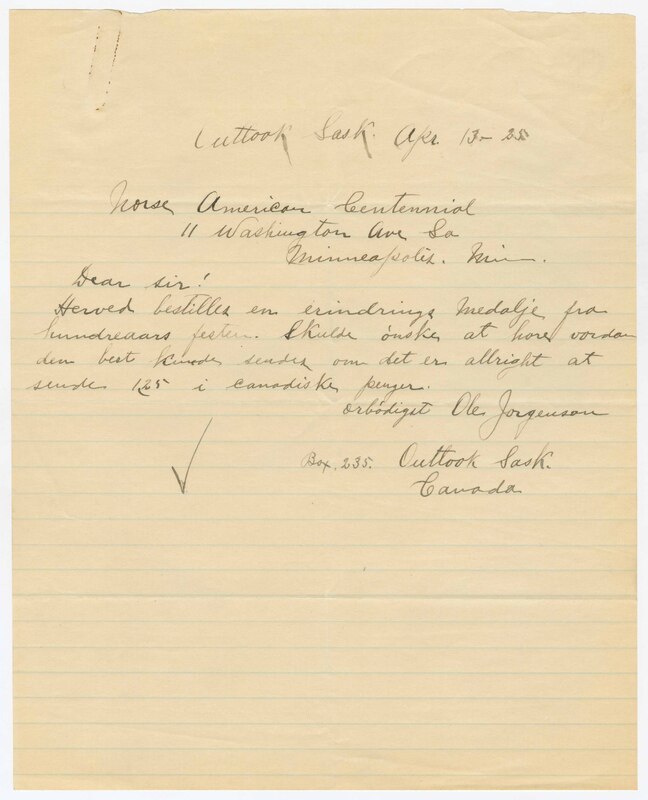 Outlook Sask. Apr. 13 - 25
Norse American Centennial
11 Washington Ave So
Minneapolis. Min.
Dear sir!
Herved bestilles en erindrings Medalje fra
hundreaars festen. Skulde ønske at høre vordan
den best kunde sendes om det er allright at
sende 1.25 i canadiske penger.
ærbødigst Ole Jorgenson
Box. 235. Outlook Sask.
Canada